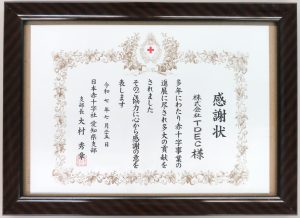 感謝状
株式会社TDEC様
多年にわたり赤十字事業の
進展に尽され多大の貢献を
されました
そのご協力に心から感謝の意を
表します
令和七年七月二十五日
日本赤十字社愛知県支部
支部長 大村秀章